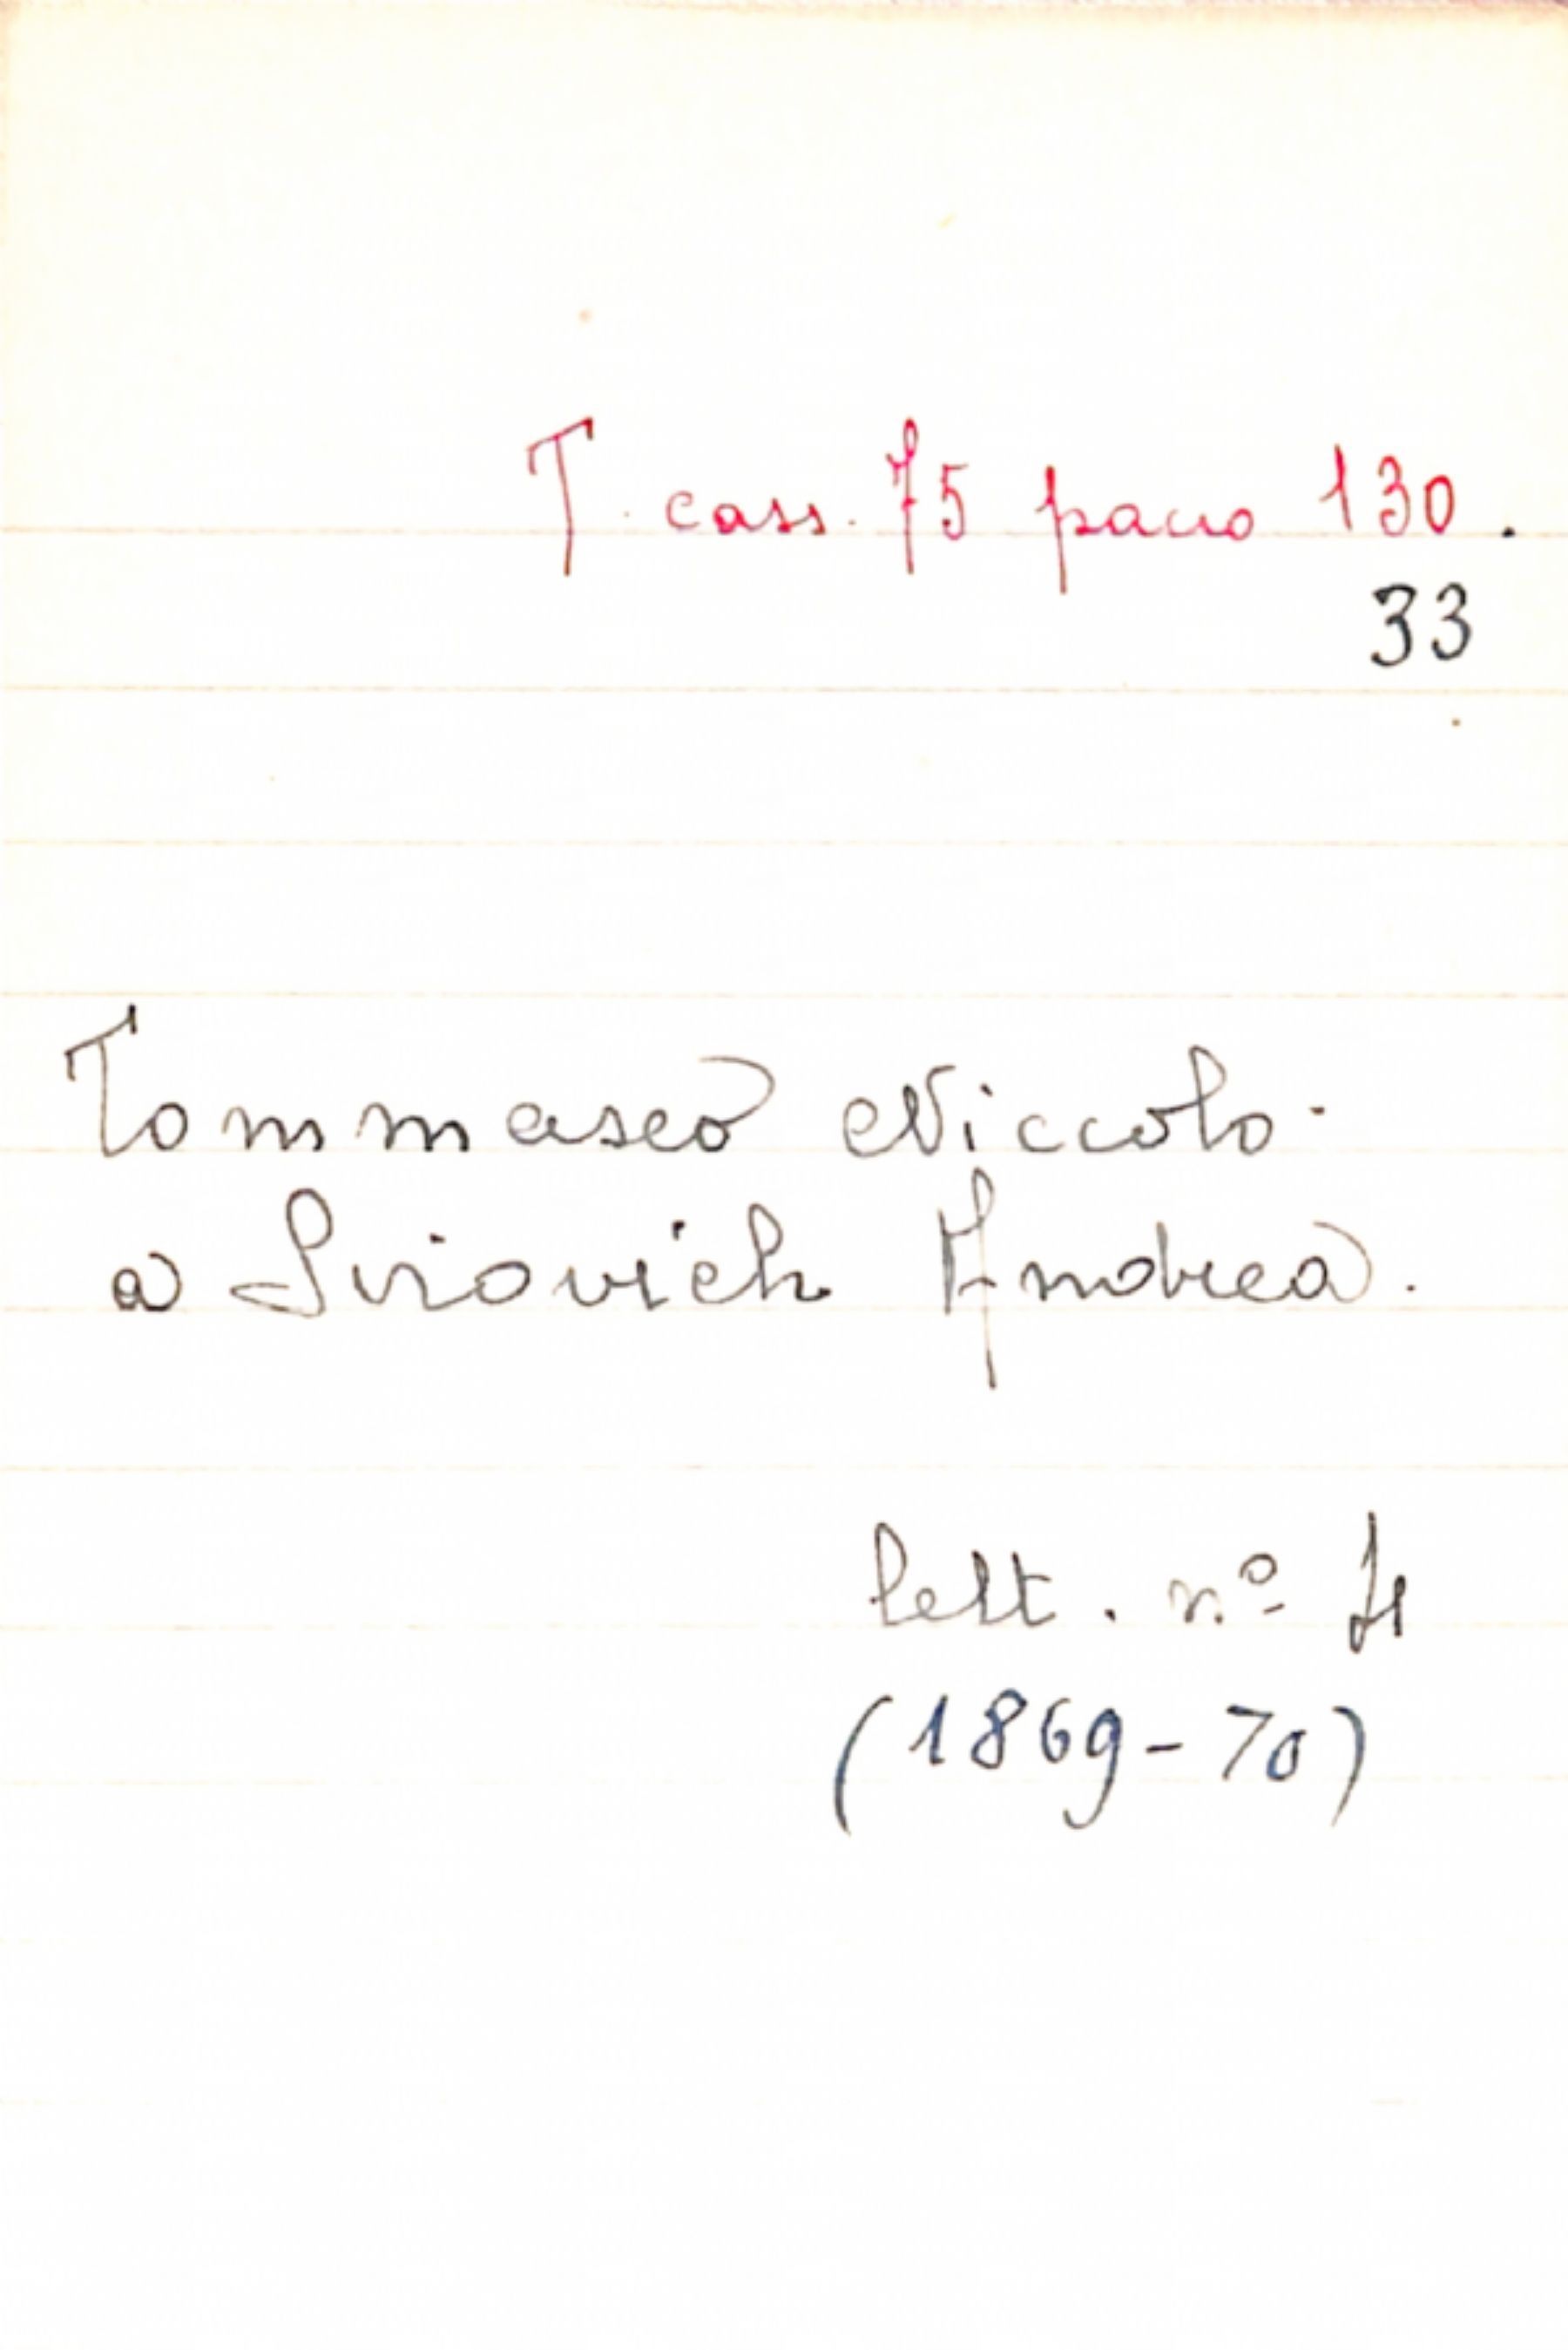 T. cass. 75 pacco 130.
33
Tommaseo Niccolo.
a Sirovich Andrea.
lett. nº 4
(1869-70)